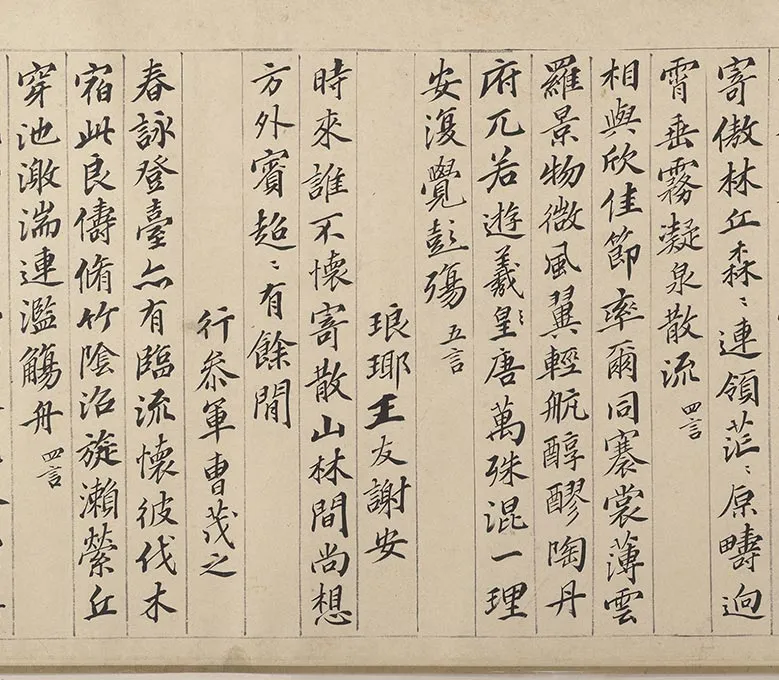 寄傲林丘森〻連領茫〻原疇逈
霄垂霧凝泉散流 四言
相與欣佳節率爾同褰裳薄雲
羅景物微風翼輕航醇醪陶丹
府兀若遊羲皇唐萬殊混一理
安復覺彭殤 五言
琅瑘王友謝安
時來誰不懷寄散山林間尚想
方外賓超〻有餘閒
行叅軍曹茂之
春詠登臺亦有臨流懷彼伐木
宿此良儔脩竹陰沿旋瀨縈丘
穿池激湍連濫觴舟 四言